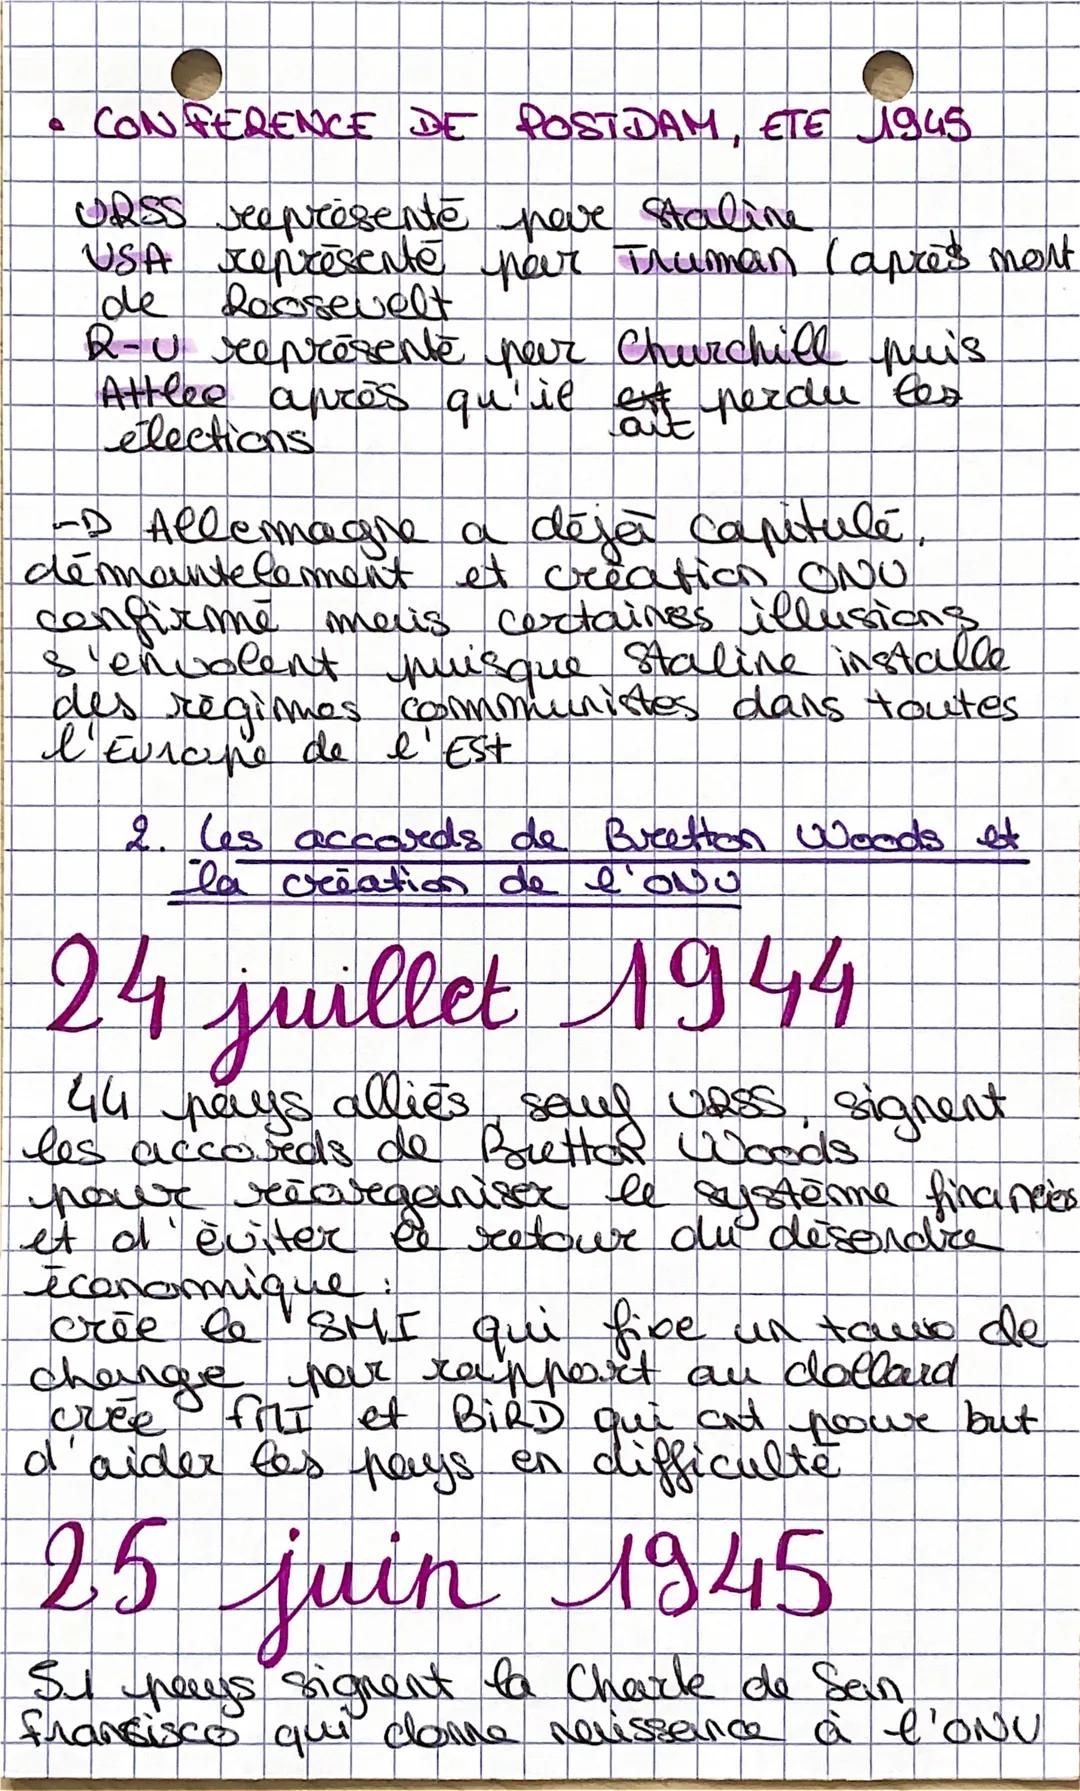 • CONFERENCE DE POSTDAM, ETE 1945
URSS représenté par Staline
USA représenté par Truman (après mort
de Roosevelt
R-U représenté par Churchill puis
Attlee après qu'il est perdu les
ait
élections
-D Allemagne a déjà capitulé,
démantelement et création ONU
confirmé mais certaines illusions
s'envolent puisque Staline installe
des régimes communistes dans toutes
l'Europe de l'Est
2. Les accords de Bretton Woods et
la création de l'ONU
24 juillet 1944
44 pays alliés, sauf URSS, signent
les accords de Bretton Woods
pour réorganiser le système financier
et d'éviter le retour du désordre
économique :
crée le SMI qui fixe un taux de
change par rapport au dollard
crée FMI et BIRD qui ont pour but
d'aider les pays en difficulté
25 juin 1945
51 pays signent la Charte de San
Fransisco qui donne naissance à l'ONU